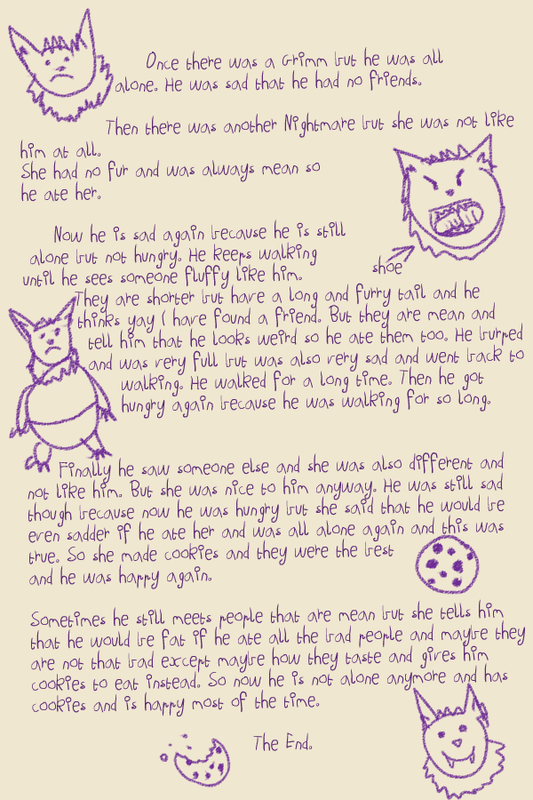 Once there was a Grimm but he was all
alone. He was sad that he had no friends.
Then there was another Nightmare but she was not like
him at all.
She had no fur and was always mean so
he ate her.
Now he is sad again because he is still
alone but not hungry. He keeps walking
until he sees someone fluffy like him.
shoe
They are shorter but have a long and furry tail and he
thinks yay I have found a friend. But they are mean and
tell him that he looks weird so he ate them too. He burped
and was very full but was also very sad and went back to
walking. He walked for a long time. Then he got
hungry again because he was walking for so long.
Finally he saw someone else and she was also different and
not like him. But she was nice to him anyway. He was still sad
though because now he was hungry but she said that he would be
even sadder if he ate her and was all alone again and this was
true. So she made cookies and they were the best
and he was happy again.
Sometimes he still meets people that are mean but she tells him
that he would be fat if he ate all the bad people and maybe they
are not that bad except maybe how they taste and gives him
cookies to eat instead. So now he is not alone anymore and has
cookies and is happy most of the time.
The End.